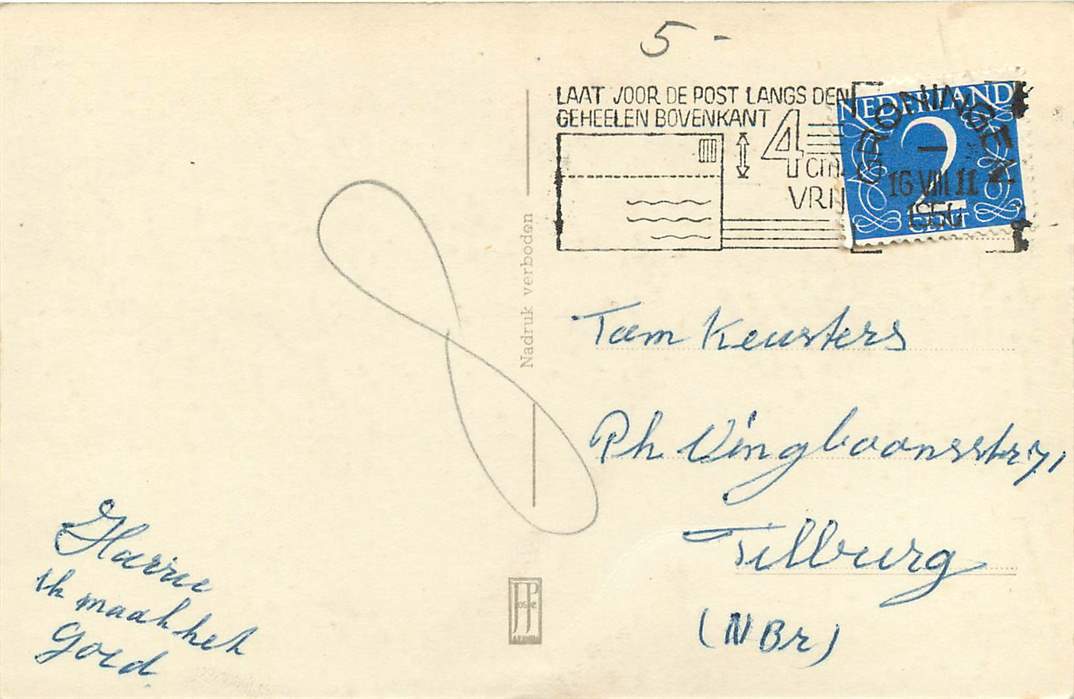 5-
LAAT VOOR DE POST LANGS DEN
GEHEELEN BOVENKANT
4
cM.
VRIJ
NEDERLAND
2
CENT
GRONINGEN
16 VIII 11
Nadruk verboden
Tom Keusters
Ph Vingboonsstr 71
Tilburg
(NBr)
Harrie
ik maak het
Goed
JP